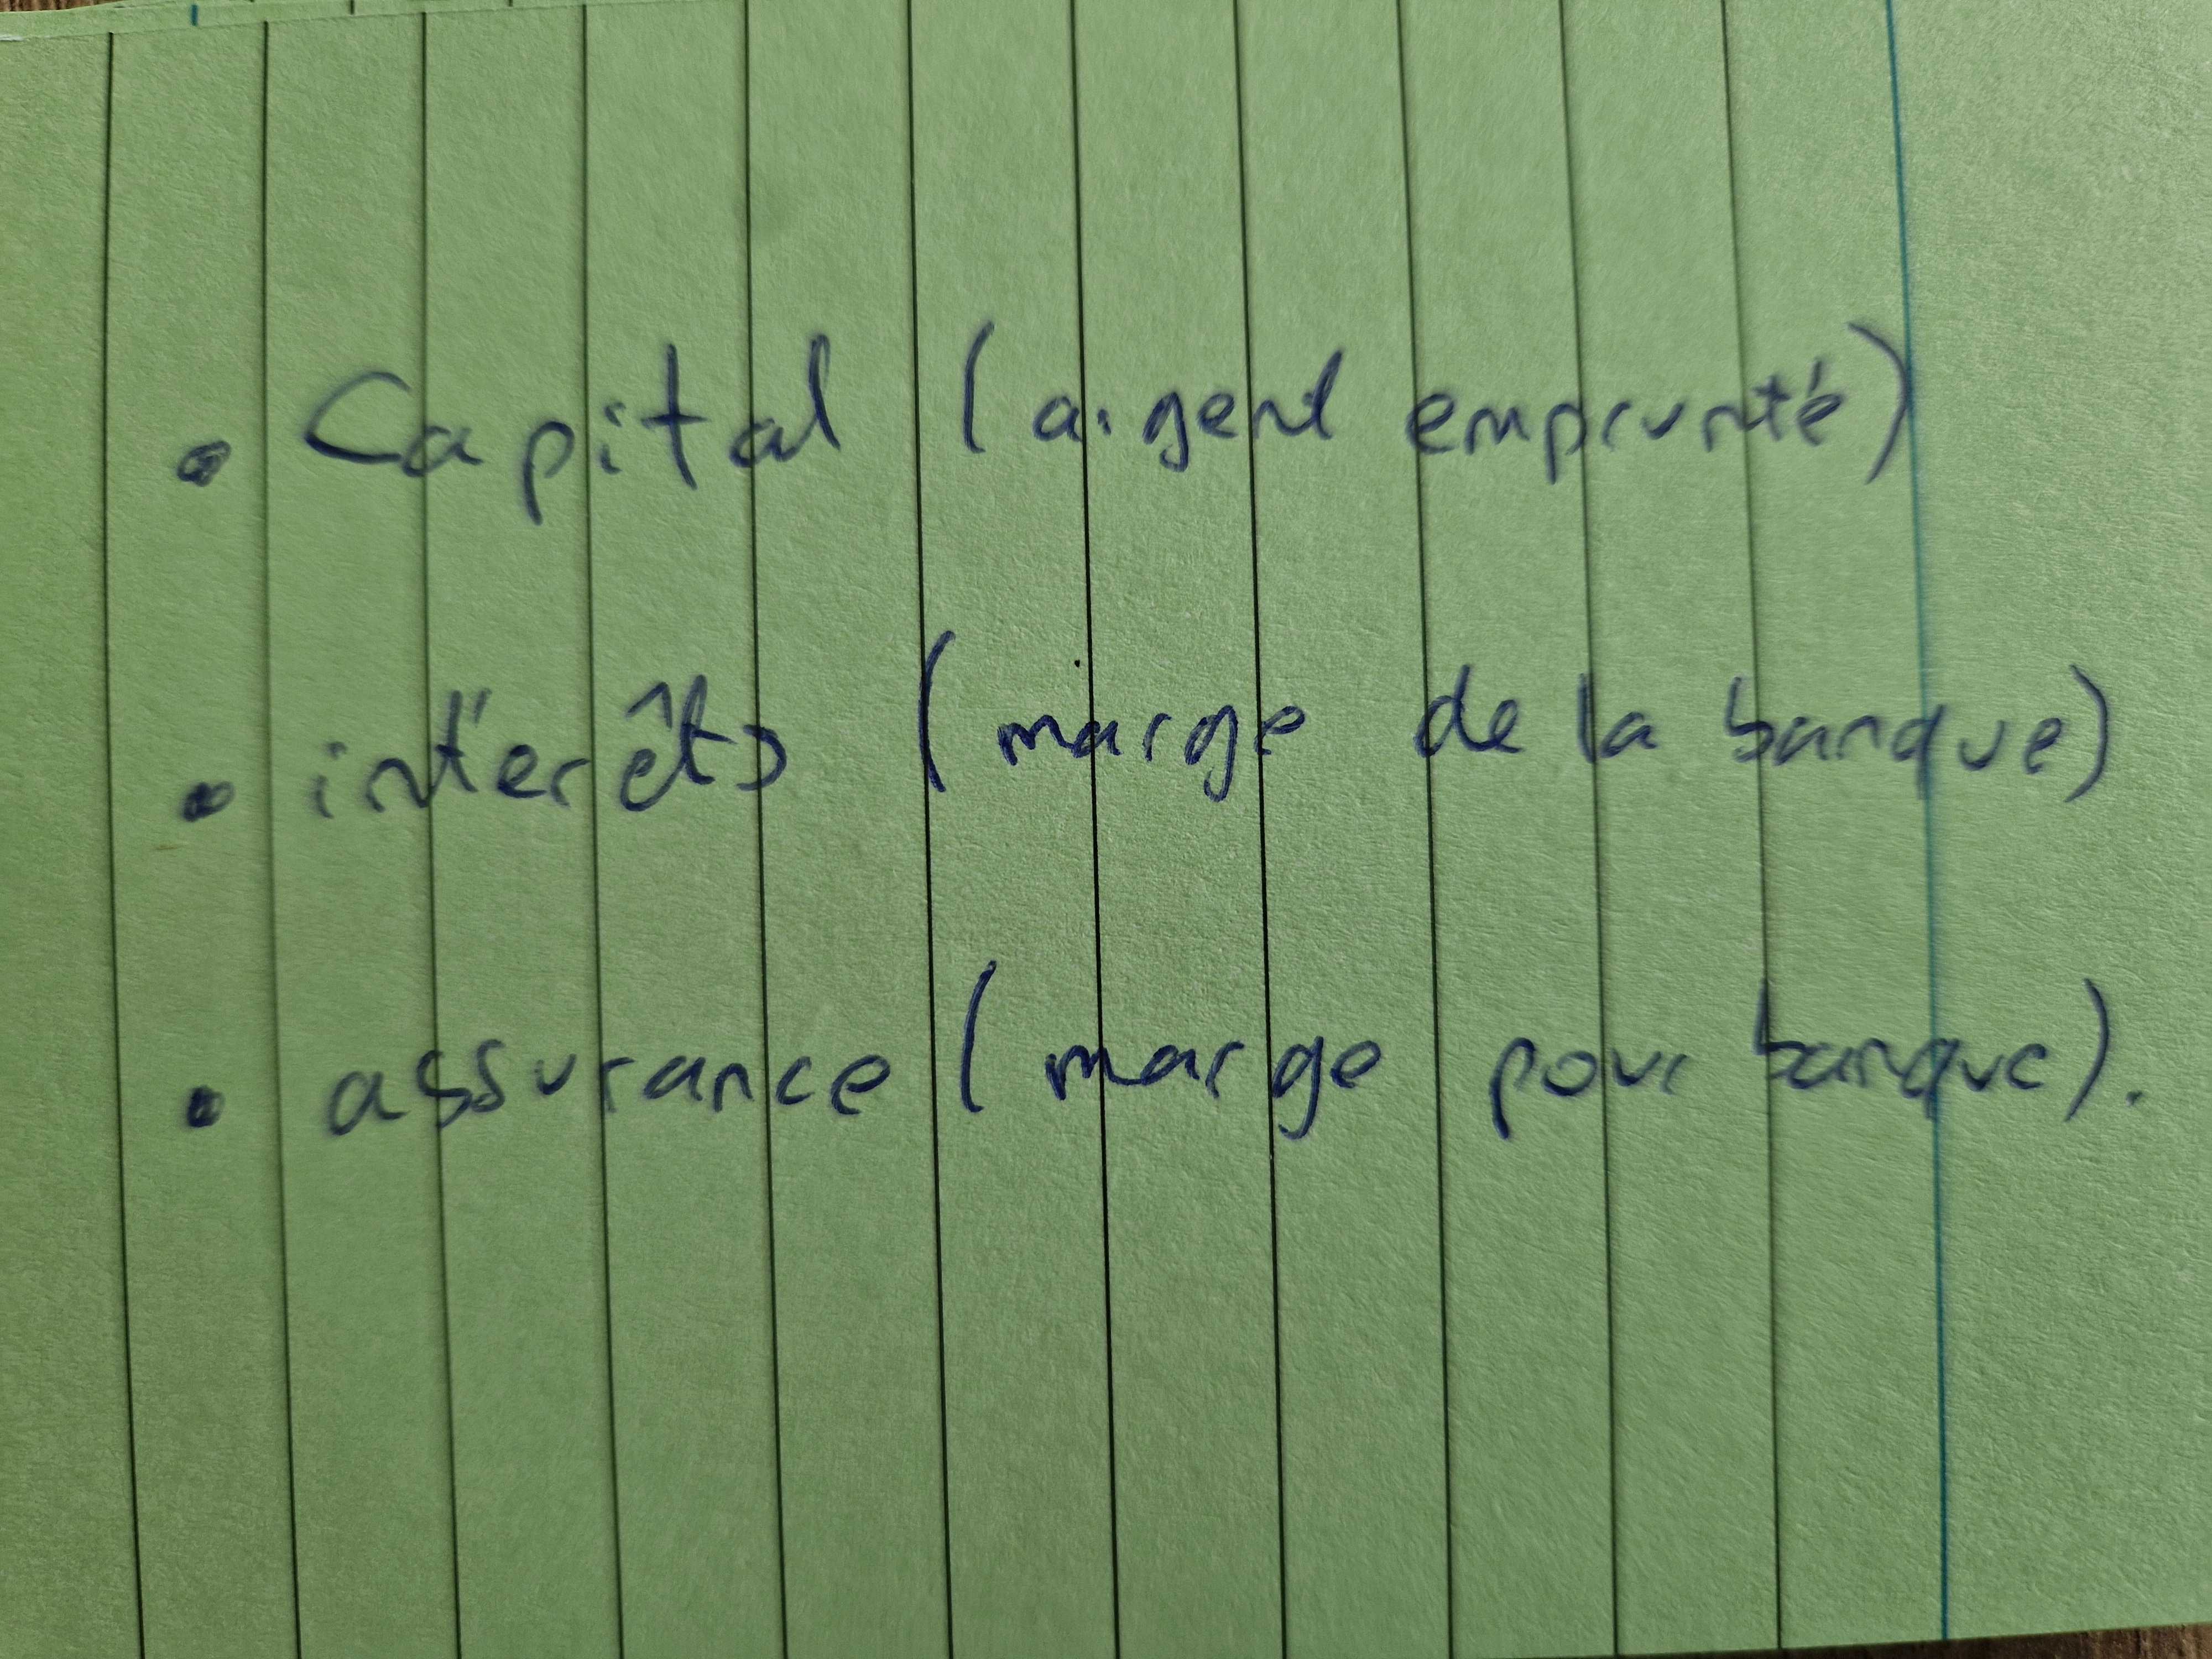 • Capital (argent emprunté)
• intérêts (marge de la banque)
• assurance (marge pour banque).